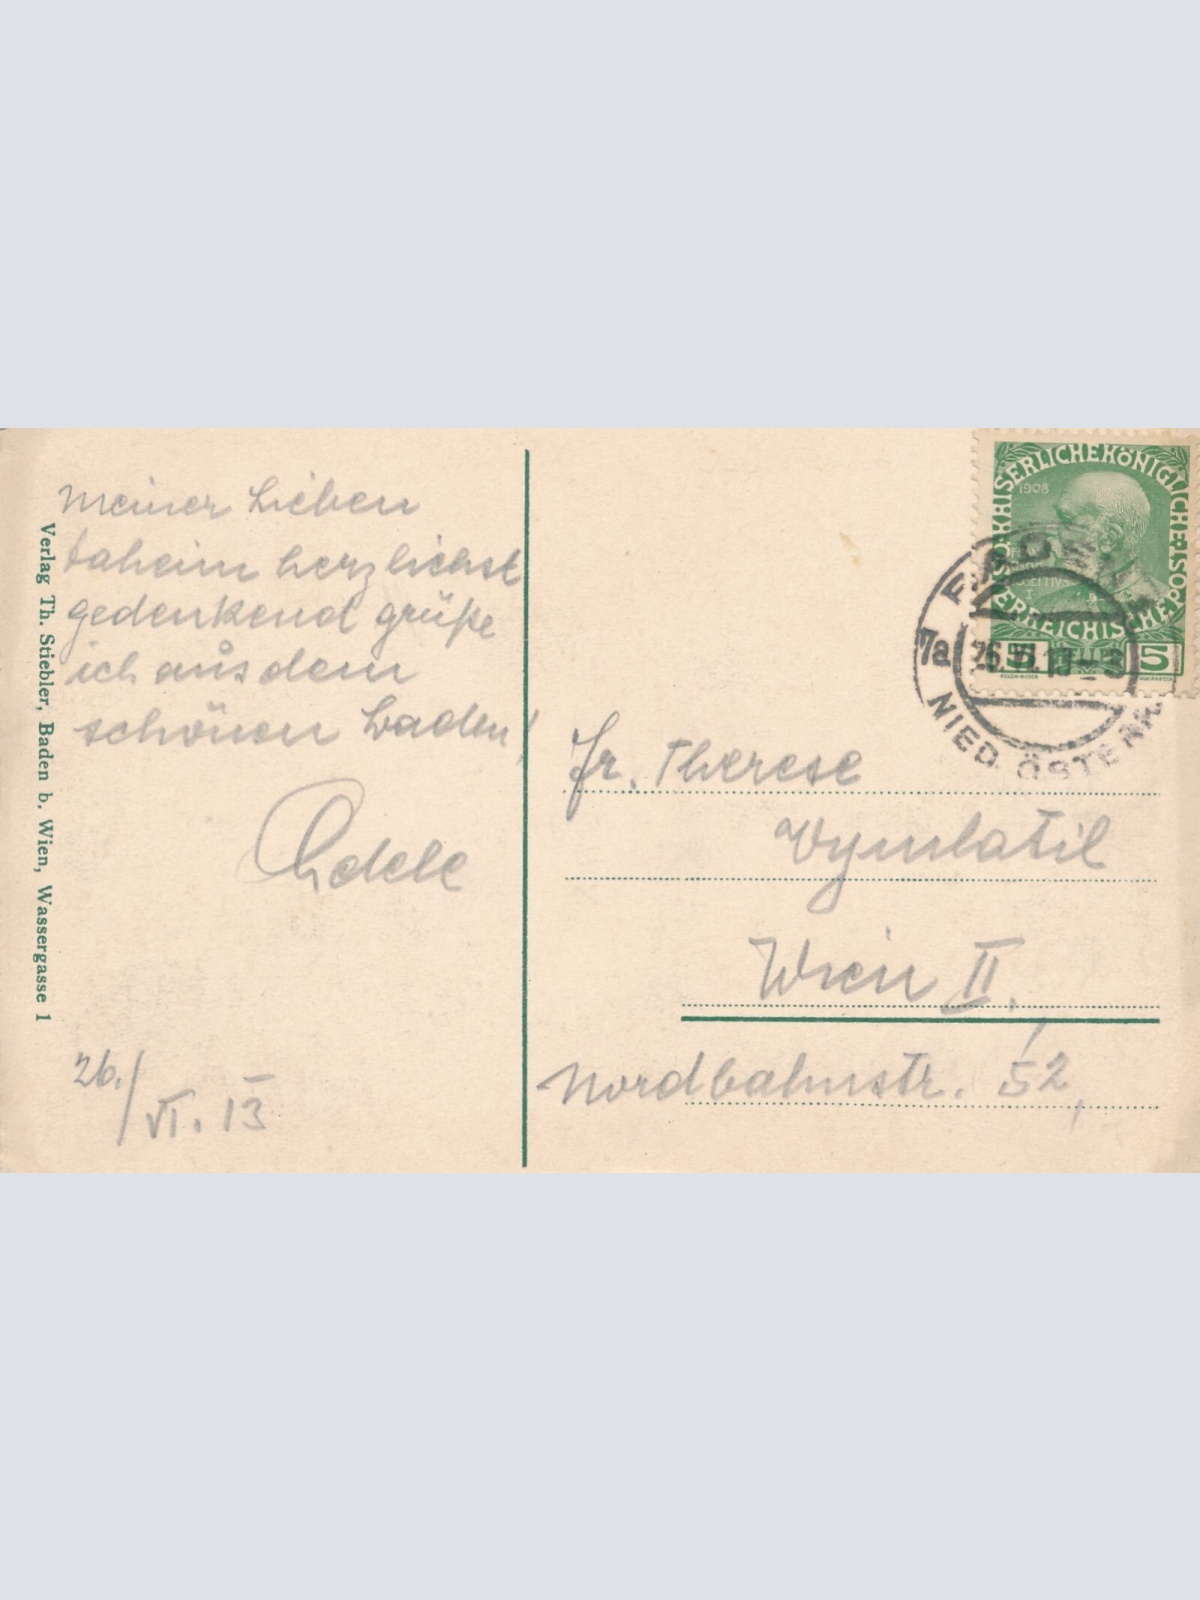 Meiner Lieben
daheim herzlichst
gedenkend grüße
ich aus dem
schönen Baden!
Adele
26./VI. 13
Verlag Th. Stiebler, Baden b. Wien, Wassergasse 1
KAISERLICHE KÖNIGLICHE ÖSTERREICHISCHE POST
1908
5 5
BADEN
7a 26.VI.13
NIED. ÖSTERR.
Fr. Therese
Wien II,
Nordbahnstr. 52,